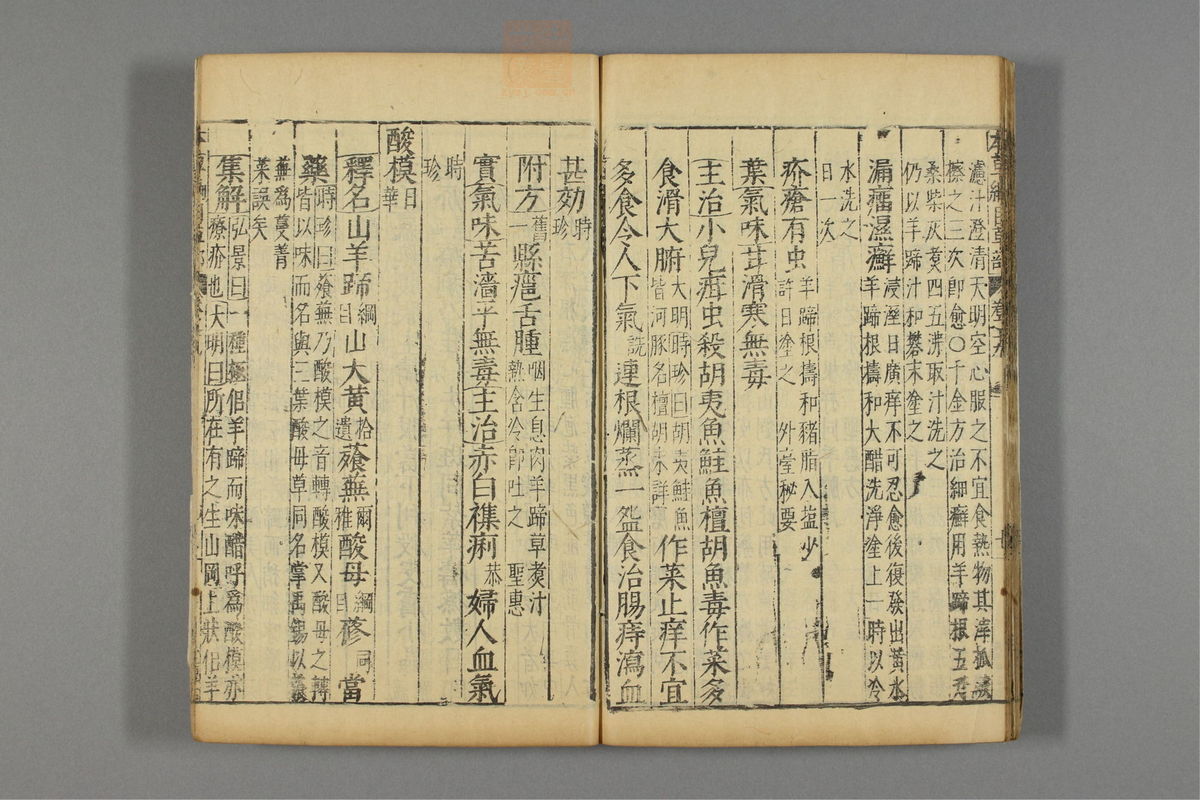 濾汁澄清天明空心服之不宜食熱物其滓抓
擦之三次即愈○千金方治細癬用羊蹄根五
桑柴火煑四五沸取汁洗之
仍以羊蹄汁和礬末塗之
漏瘤濕癬浸溼日廣痒不可忍愈後復發出黃水
羊蹄根擣和大醋洗淨塗上一時以冷
水洗之
日一次
疥瘡有虫羊蹄根擣和豬脂入塩少
許日塗之 外臺秘要
葉氣味甘滑寒無毒
主治小兒疳虫殺胡夷魚鮭魚檀胡魚毒作菜多
食滑大腑大明時珍曰胡夷鮭魚
皆河豚名檀胡未詳作菜止痒不宜
多食令人下氣詵連根爛蒸一盌食治腸痔瀉血
甚効時
珍
附方舊
一懸癰舌腫咽生息肉羊蹄草煑汁
熱含冷卽吐之 聖惠
實氣味苦濇平無毒主治赤白襍痢恭婦人血氣
時
珍
酸模日
華
釋名山羊蹄綱
目山大黃拾
遺蕵蕪爾
雅酸母綱
目蓚同當
藥時珍曰蕵蕪乃酸模之音轉酸模又酸母之轉
皆以味而名與三葉酸母草同名掌禹錫以蕵
蕪爲蔓菁
菜誤矣
集解弘景曰一種極佀羊蹄而味醋呼爲酸模亦
療疥也大明曰所在有之生山岡上狀佀羊